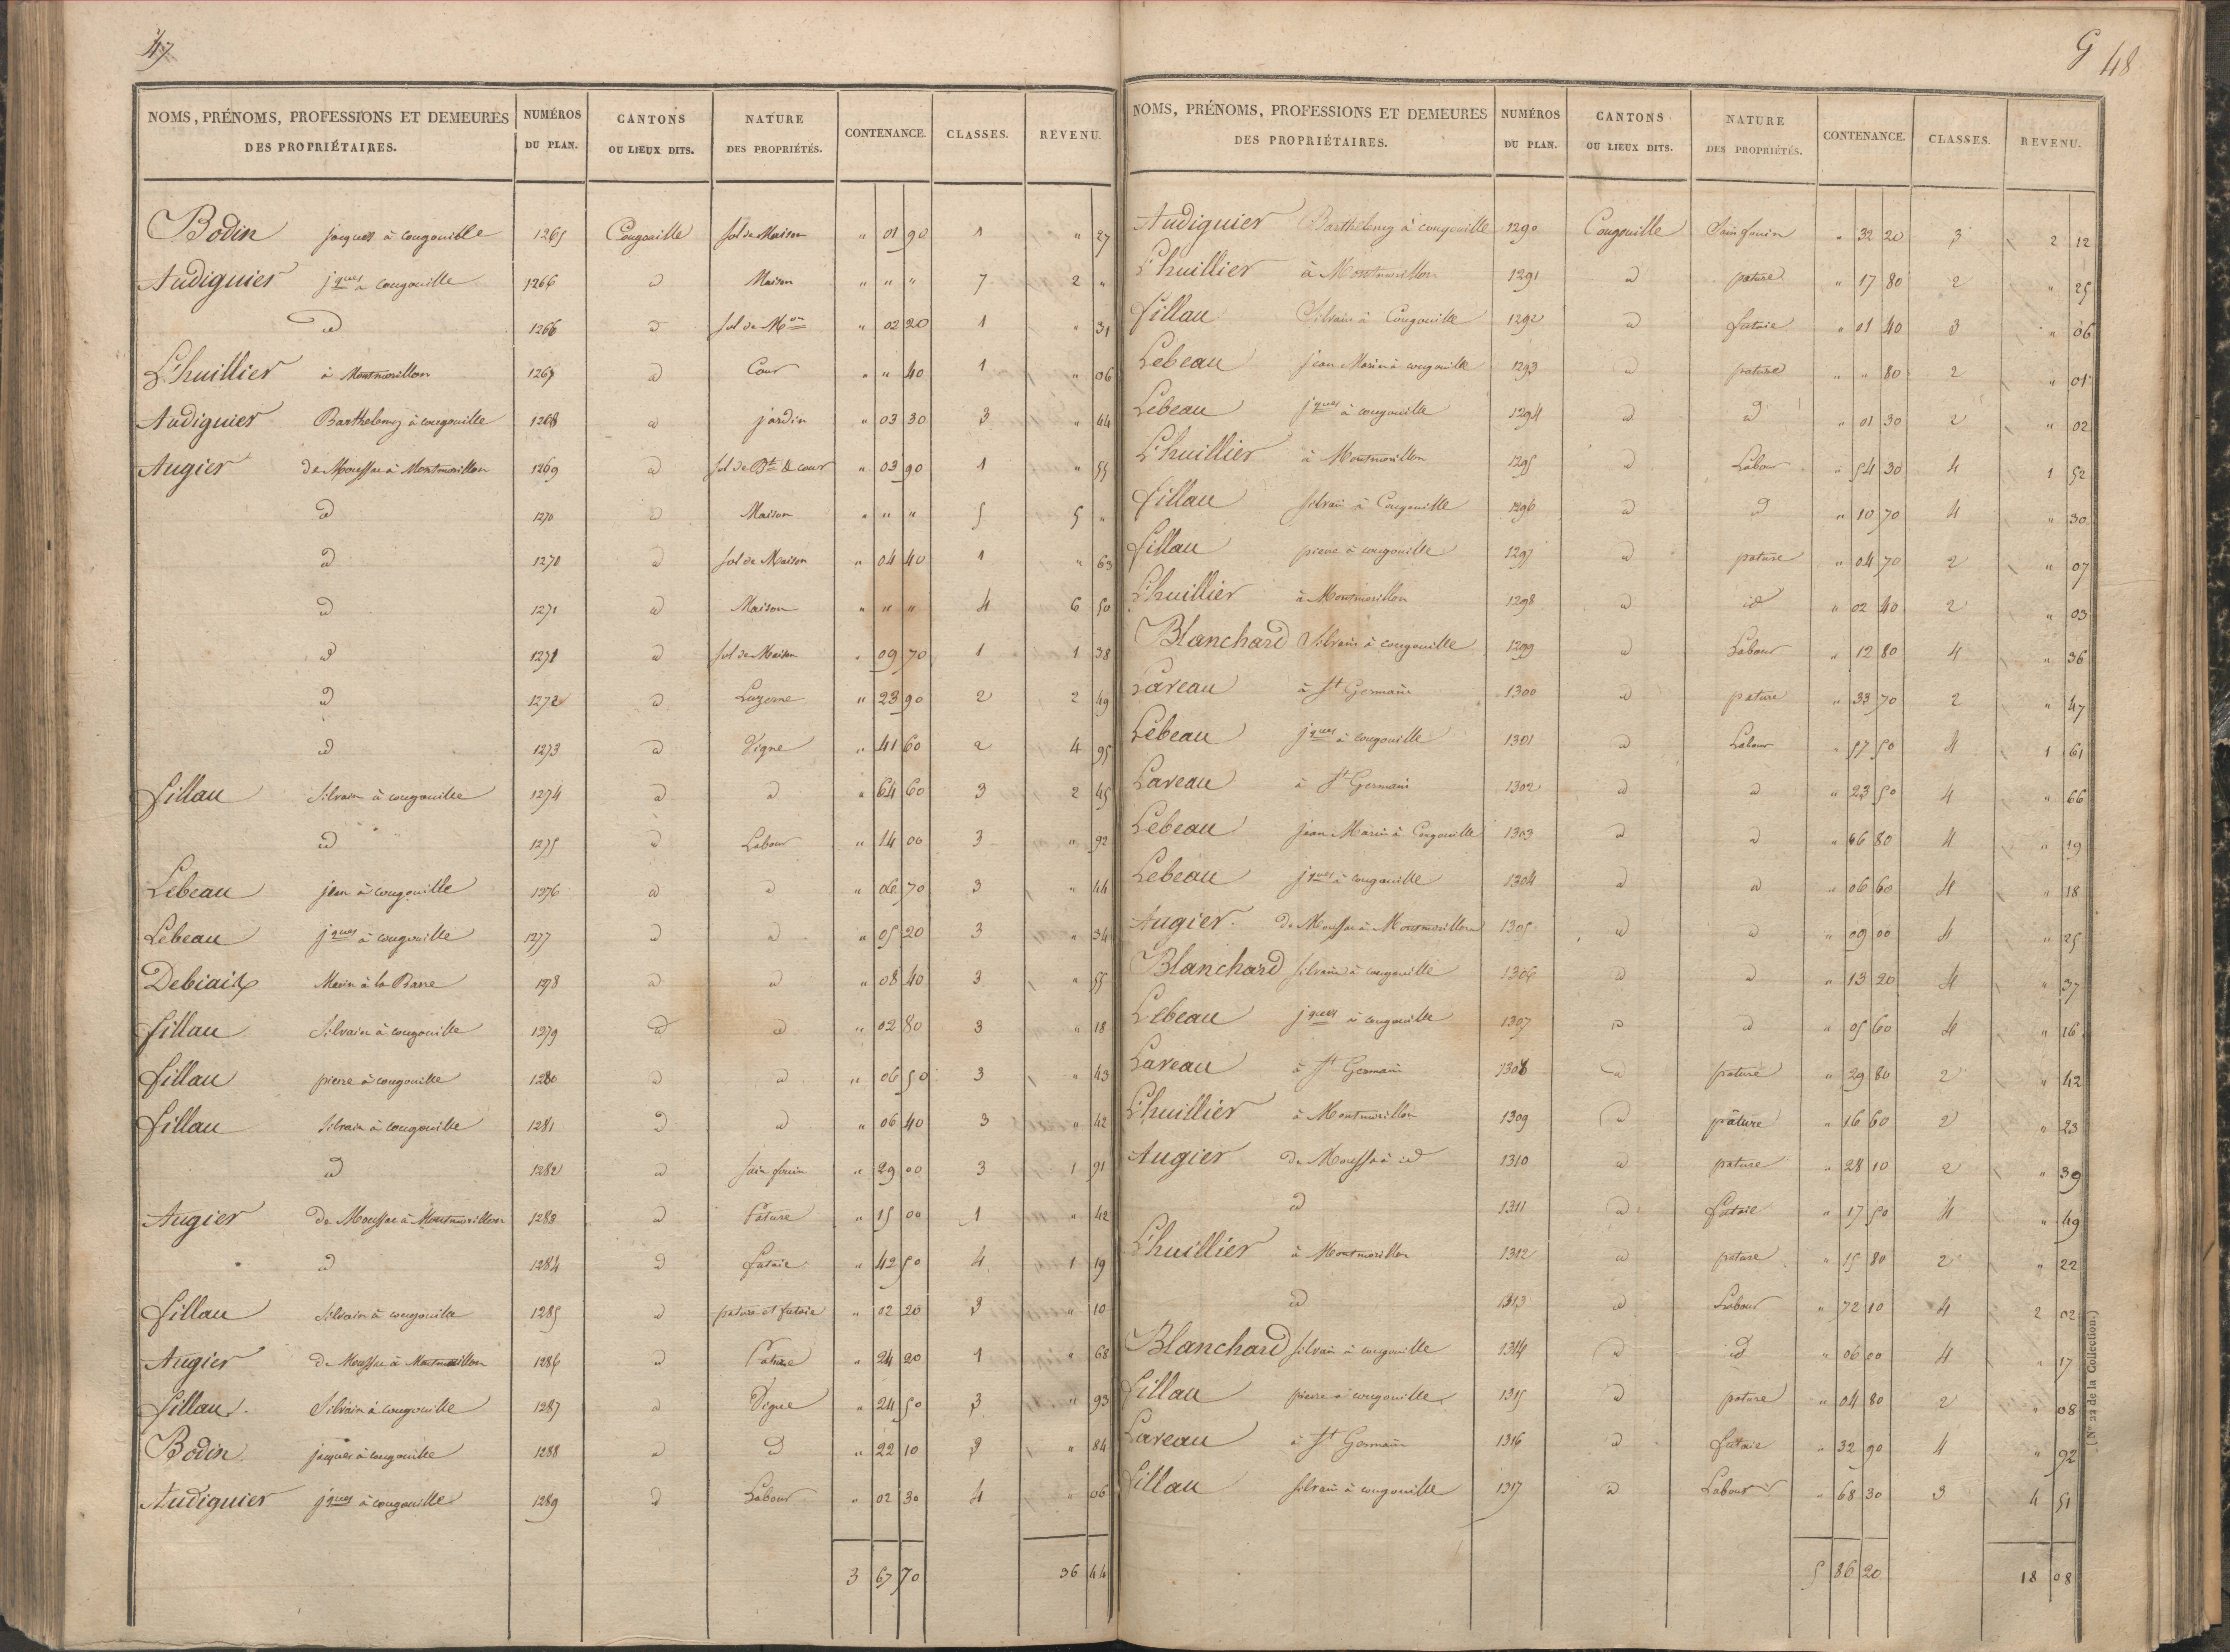 47
NOMS, PRÉNOMS, PROFESSIONS ET DEMEURES DES PROPRIÉTAIRES. NUMÉROS DU PLAN. CANTONS OU LIEUX DITS. NATURE DES PROPRIÉTÉS. CONTENANCE. CLASSES. REVENU.
Bodin jacques à cougouille 1265 Cougouille sol de Maison " 01 90 1 " 27
Audiguier jques à cougouille 1266 id Maison " " " 7 2 "
id 1266 id sol de Mon " 02 20 1 " 31
L'huillier à Montmorillon 1267 id Cour " " 40 1 " 06
Audiguier Barthelemy à cougouille 1268 id jardin " 03 30 3 " 44
Augier de Moussac à Montmorillon 1269 id sol de Bt & cour " 03 90 1 " 55
id 1270 id Maison " " " 5 5 "
id 1270 id sol de Maison " 04 40 1 " 63
id 1271 id Maison " " " 4 6 50
id 1271 id sol de Maison " 09 70 1 1 38
id 1272 id Luzerne " 23 90 2 2 49
id 1273 id Vigne " 41 60 2 4 95
fillau Silvain à cougouille 1274 id id " 64 60 3 2 45
id 1275 id Labour " 14 00 3 " 92
Lebeau jean à cougouille 1276 id id " 06 70 3 " 44
Lebeau jques à cougouille 1277 id id " 05 20 3 " 34
Debiaix Marin à la Barre 1278 id id " 08 40 3 " 55
fillau Silvain à cougouille 1279 id id " 02 80 3 " 18
fillau pierre à cougouille 1280 id id " 06 50 3 " 43
fillau Silvain à cougouille 1281 id id " 06 40 3 " 42
id 1282 id sain fouin " 29 00 3 1 91
Augier de Moussac à Montmorillon 1283 id Pature " 15 00 1 " 42
id 1284 id futaie " 42 50 4 1 19
fillau Silvain à cougouille 1285 id pature et futaie " 02 20 3 " 10
Augier de Moussac à Montmorillon 1286 id Pature " 24 20 1 " 68
fillau Silvain à cougouille 1287 id Vigne " 24 50 3 " 93
Bodin jacques à cougouille 1288 id id " 22 10 3 " 84
Audiguier jques à cougouille 1289 id Labour " 02 30 4 " 06
3 67 70 36 44
G 48
NOMS, PRÉNOMS, PROFESSIONS ET DEMEURES DES PROPRIÉTAIRES. NUMÉROS DU PLAN. CANTONS OU LIEUX DITS. NATURE DES PROPRIÉTÉS. CONTENANCE. CLASSES. REVENU.
Audiguier Barthelemy à cougouille 1290 Cougouille Sain fouin " 32 20 3 2 12
L'huillier à Montmorillon 1291 id pature " 17 80 2 " 25
fillau Silvain à Cougouille 1292 id futaie " 01 40 3 " 06
Lebeau jean Marin à cougouille 1293 id pature " " 80 2 " 01
Lebeau jques à cougouille 1294 id id " 01 30 2 " 02
L'huillier à Montmorillon 1295 id Labour " 54 30 4 1 52
fillau Silvain à Cougouille 1296 id id " 10 70 4 " 30
fillau pierre à cougouille 1297 id pature " 04 70 2 " 07
L'huillier à Montmorillon 1298 id id " 02 40 2 " 03
Blanchard Silvain à cougouille 1299 id Labour " 12 80 4 " 36
Lareau à St Germain 1300 id pature " 33 70 2 " 47
Lebeau jques à cougouille 1301 id Labour " 57 50 4 1 61
Lareau à St Germain 1302 id id " 23 50 4 " 66
Lebeau jean Marin à Cougouille 1303 id id " 06 80 4 " 19
Lebeau jques à cougouille 1304 id id " 06 60 4 " 18
Augier de Moussac à Montmorillon 1305 id id " 09 00 4 " 25
Blanchard Silvain à cougouille 1306 id id " 13 20 4 " 37
Lebeau jques à cougouille 1307 id id " 05 60 4 " 16
Lareau à St Germain 1308 id pature " 29 80 2 " 42
L'huillier à Montmorillon 1309 id pâture " 16 60 2 " 23
Augier de Moussac à id 1310 id pature " 28 10 2 " 39
id 1311 id futaie " 17 50 4 " 49
L'huillier à Montmorillon 1312 id pature " 15 80 2 " 22
id 1313 id Labour " 72 10 4 2 02
Blanchard Silvain à cougouille 1314 id id " 06 00 4 " 17
fillau pierre à cougouille 1315 id pature " 04 80 2 " 08
Lareau à St Germain 1316 id futaie " 32 90 4 " 92
fillau Silvain à cougouille 1317 id Labour " 68 30 3 4 51
5 86 20 18 08
(N° 22 de la Collection.)